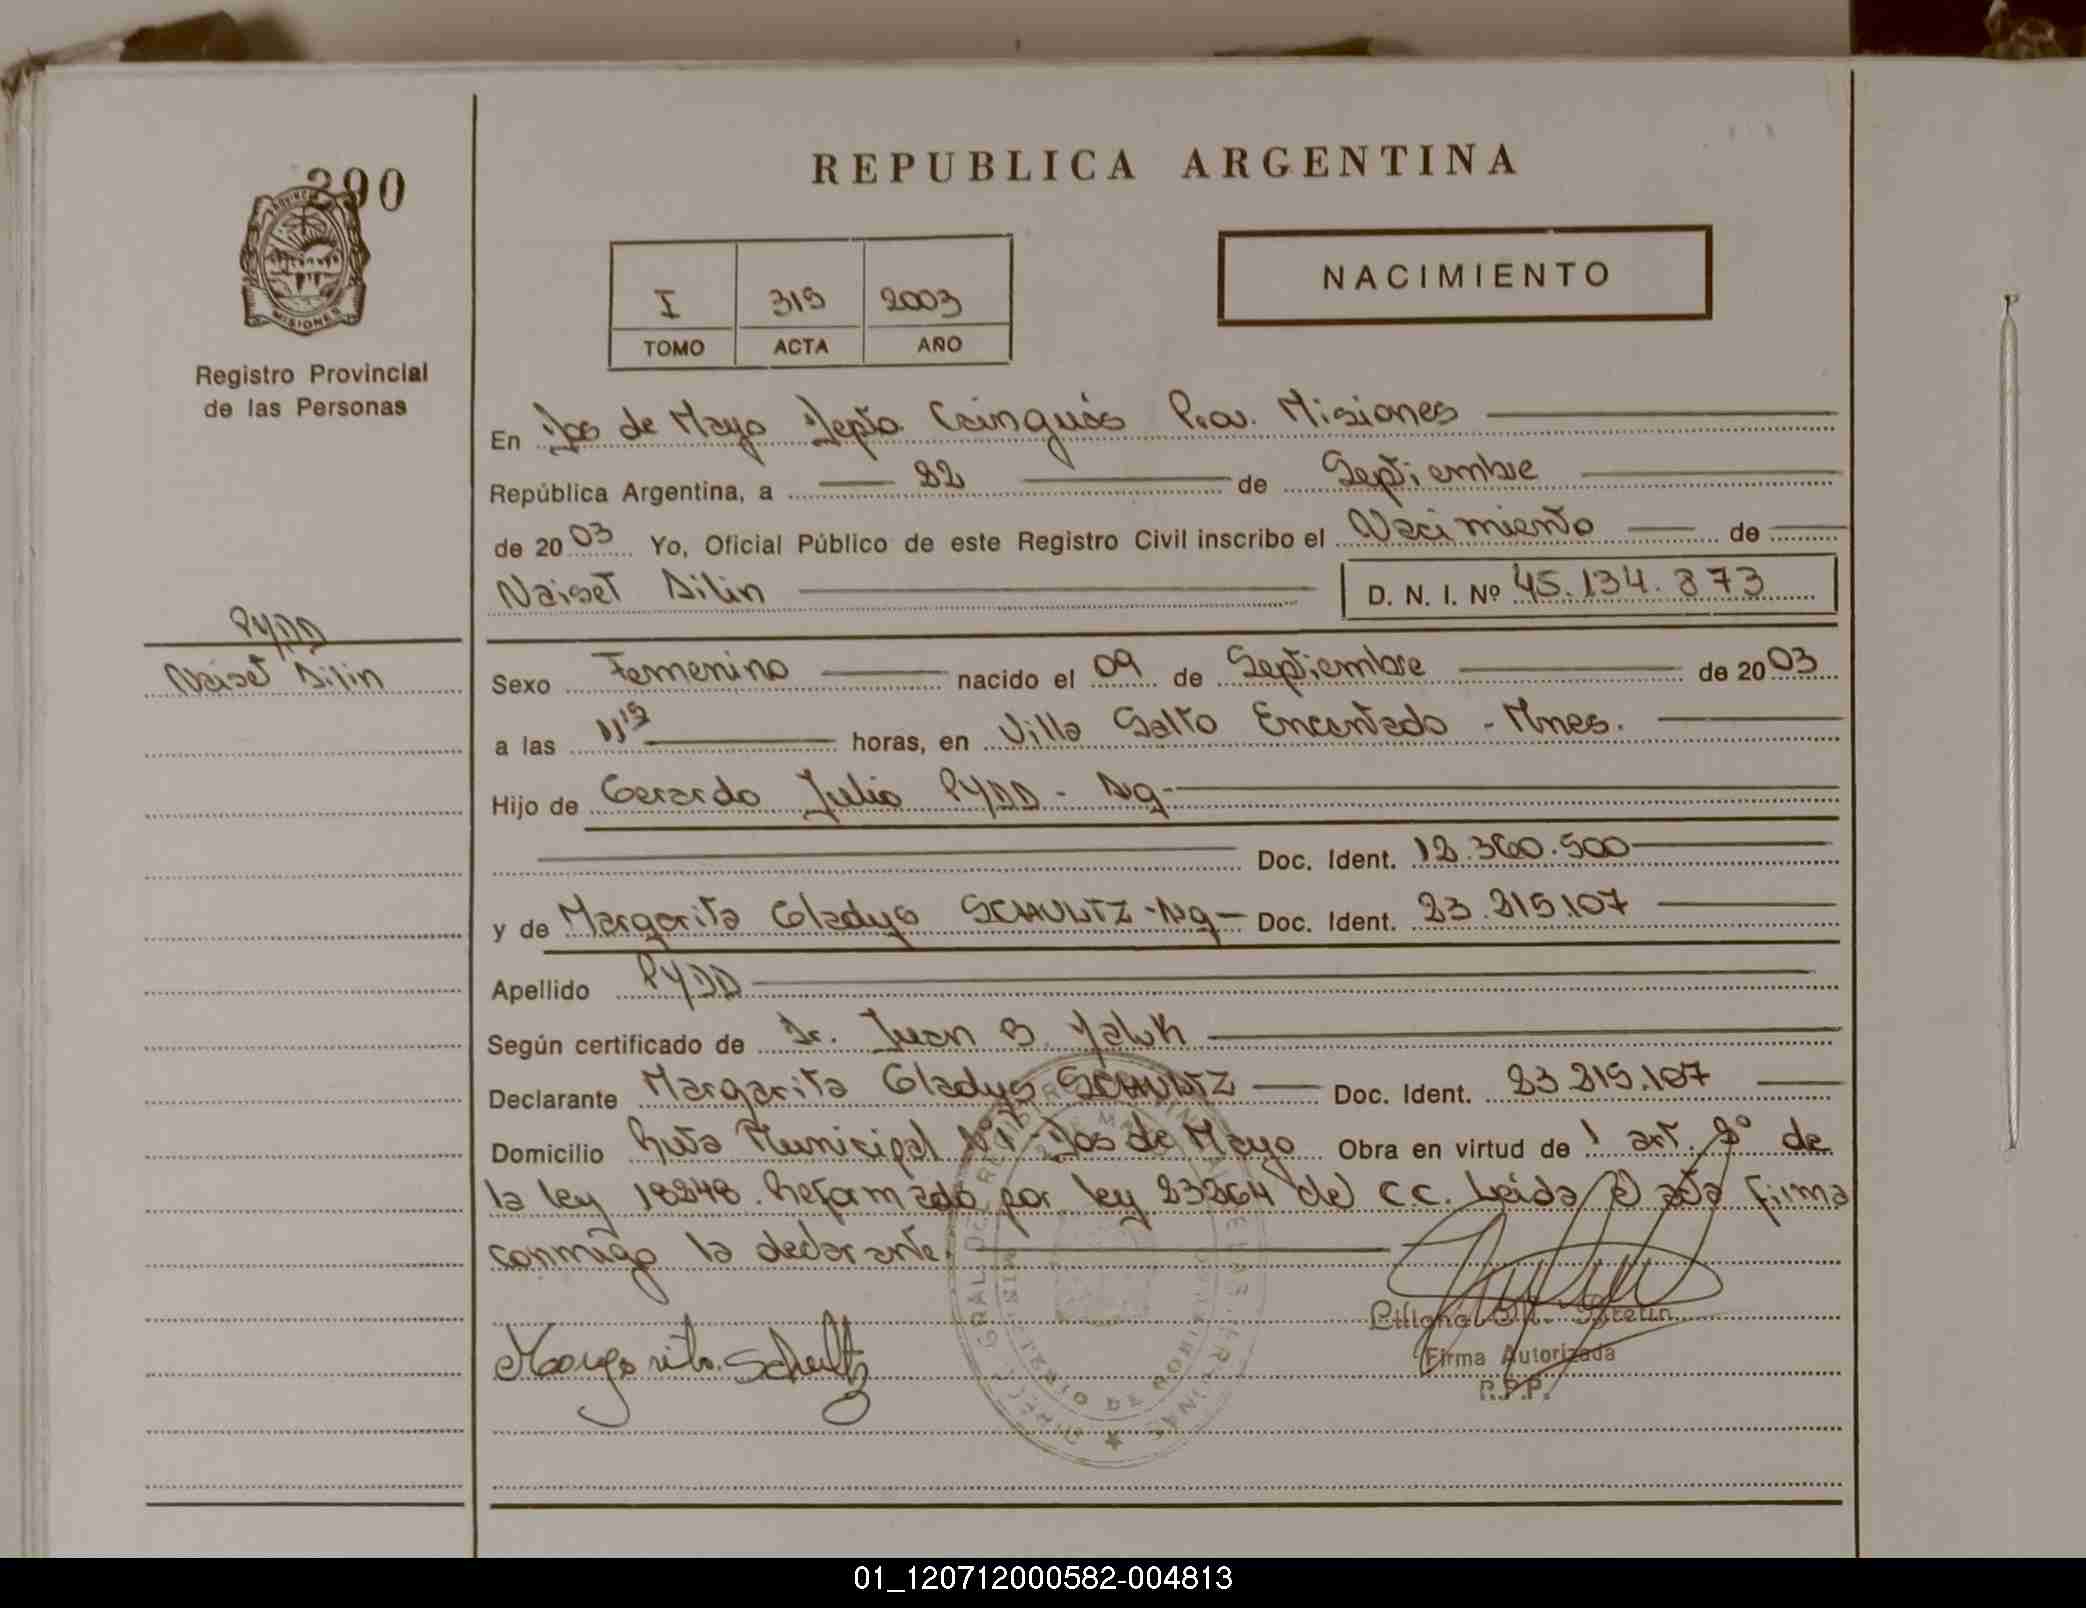 290
REPUBLICA ARGENTINA
MISIONES
Registro Provincial
de las Personas
I 319 2003
TOMO ACTA AÑO
NACIMIENTO
En Dos de Mayo Depto. Cainguás Prov. Misiones
República Argentina, a 22 de Septiembre
de 2003 Yo, Oficial Público de este Registro Civil inscribo el Nacimiento de
Naiset Ailin D. N. I. Nº 45.134.873
PYDD
Naiset Ailin
Sexo Femenino nacido el 09 de Septiembre de 2003
a las 11 15 horas, en Villa Salto Encantado - Mnes.
Hijo de Gerardo Julio PYDD - Ag-
Doc. Ident. 12.360.500
y de Margarita Gladys SCHULTZ -Ag- Doc. Ident. 23.219.107
Apellido PYDD
Según certificado de Dr. Juan B.
Declarante Margarita Gladys SCHULTZ Doc. Ident. 23 219.107
Domicilio Ruta Municipal Nº1 - Dos de Mayo Obra en virtud de l art. 2º de
la ley 18248. Reformado por ley 23264 del C.C. Leída el acta firma
conmigo la declarante.
Margarita Schultz
Liliana
Firma Autorizada
R.P.P.
01_120712000582-004813